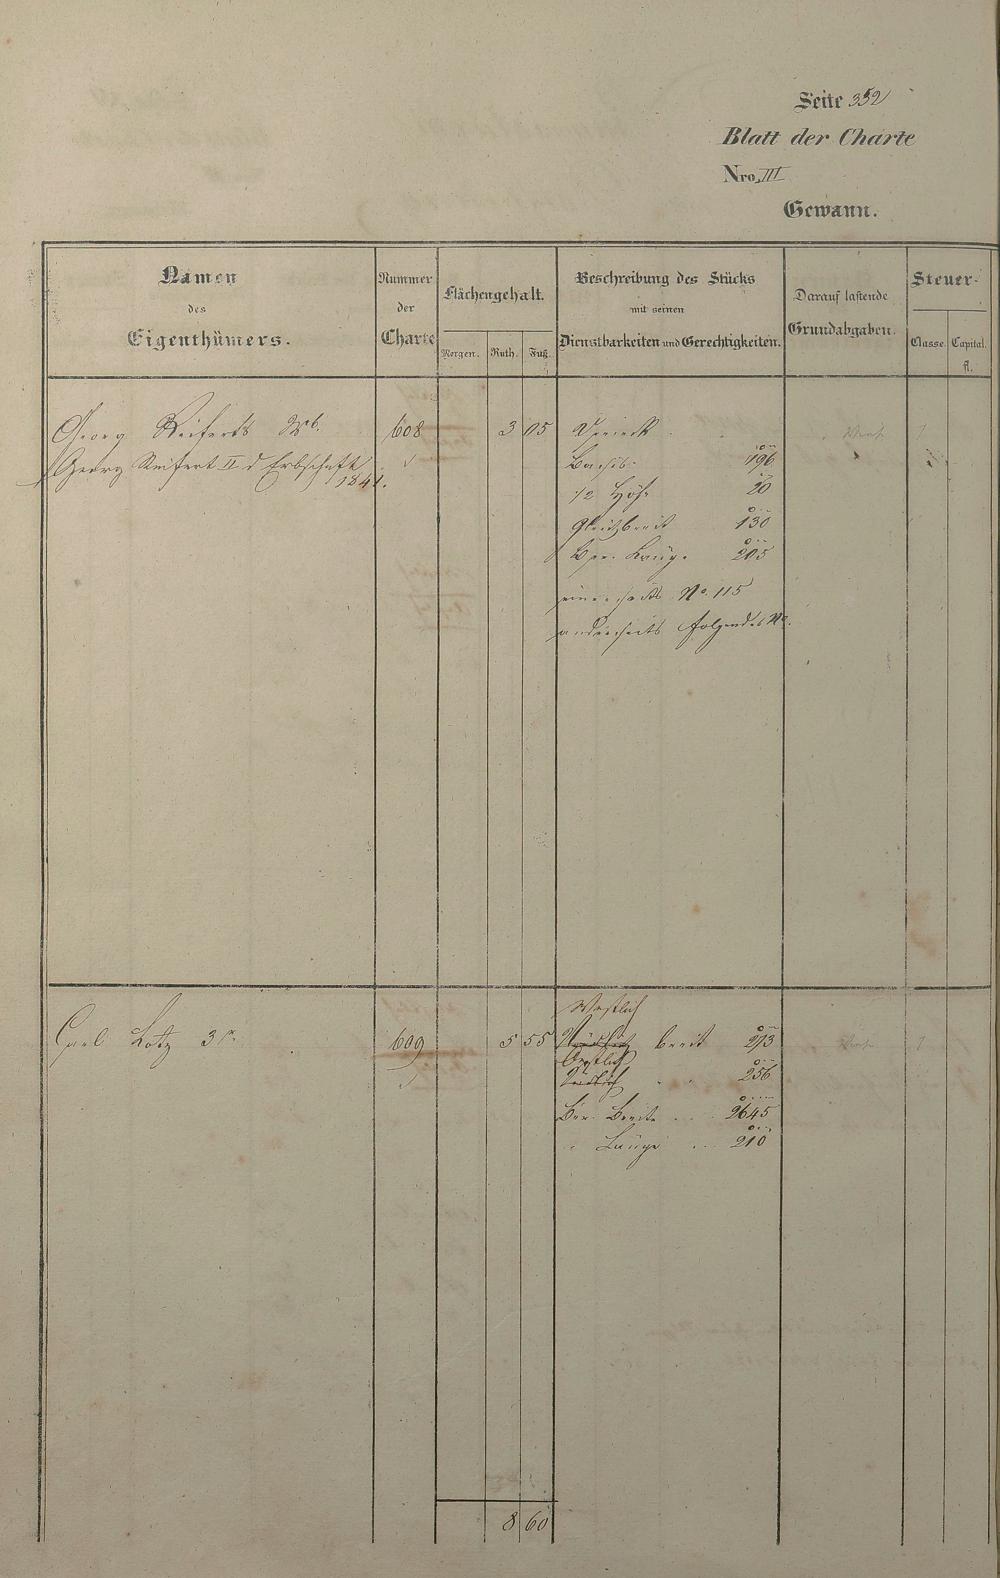 Seite 352
Blatt der Charte
Nro. III
Gewann.
Namen
des
Eigenthümers.
Nummer
der
Charte
Flächengehalt.
Morgen. Ruth. Fuß.
Beschreibung des Stücks
mit seinen
Dienstbarkeiten und Gerechtigkeiten.
Darauf lastende
Grundabgaben.
Steuer-
Classe. Capital.
fl.
Georg Reiferts Wb. 608 3 05 Dreieck
Georg Reifert II d Erbschaft
1841.
Basis 196
1/2 Höhe 20
Gleichbreit 130
Ber. Länge 205
einerseits No. 115
anderseits folgendes No.
Westlich
Carl Lotz 3r 609 5 55 breit 273
Oestlich
256
Ber. Breite 2645
" Länge 210
8 60